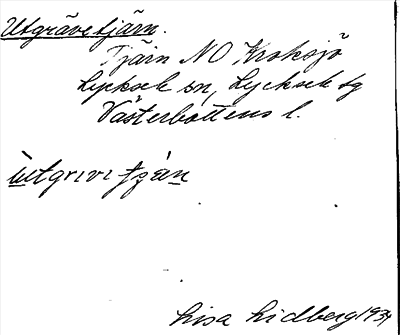 Utgrävetjärn.
Tjärn NO Kroksjö
Lycksele sn, Lycksele sg
Västerbottens l.
ùtgrivi tjàn
Lisa Lidberg 1934